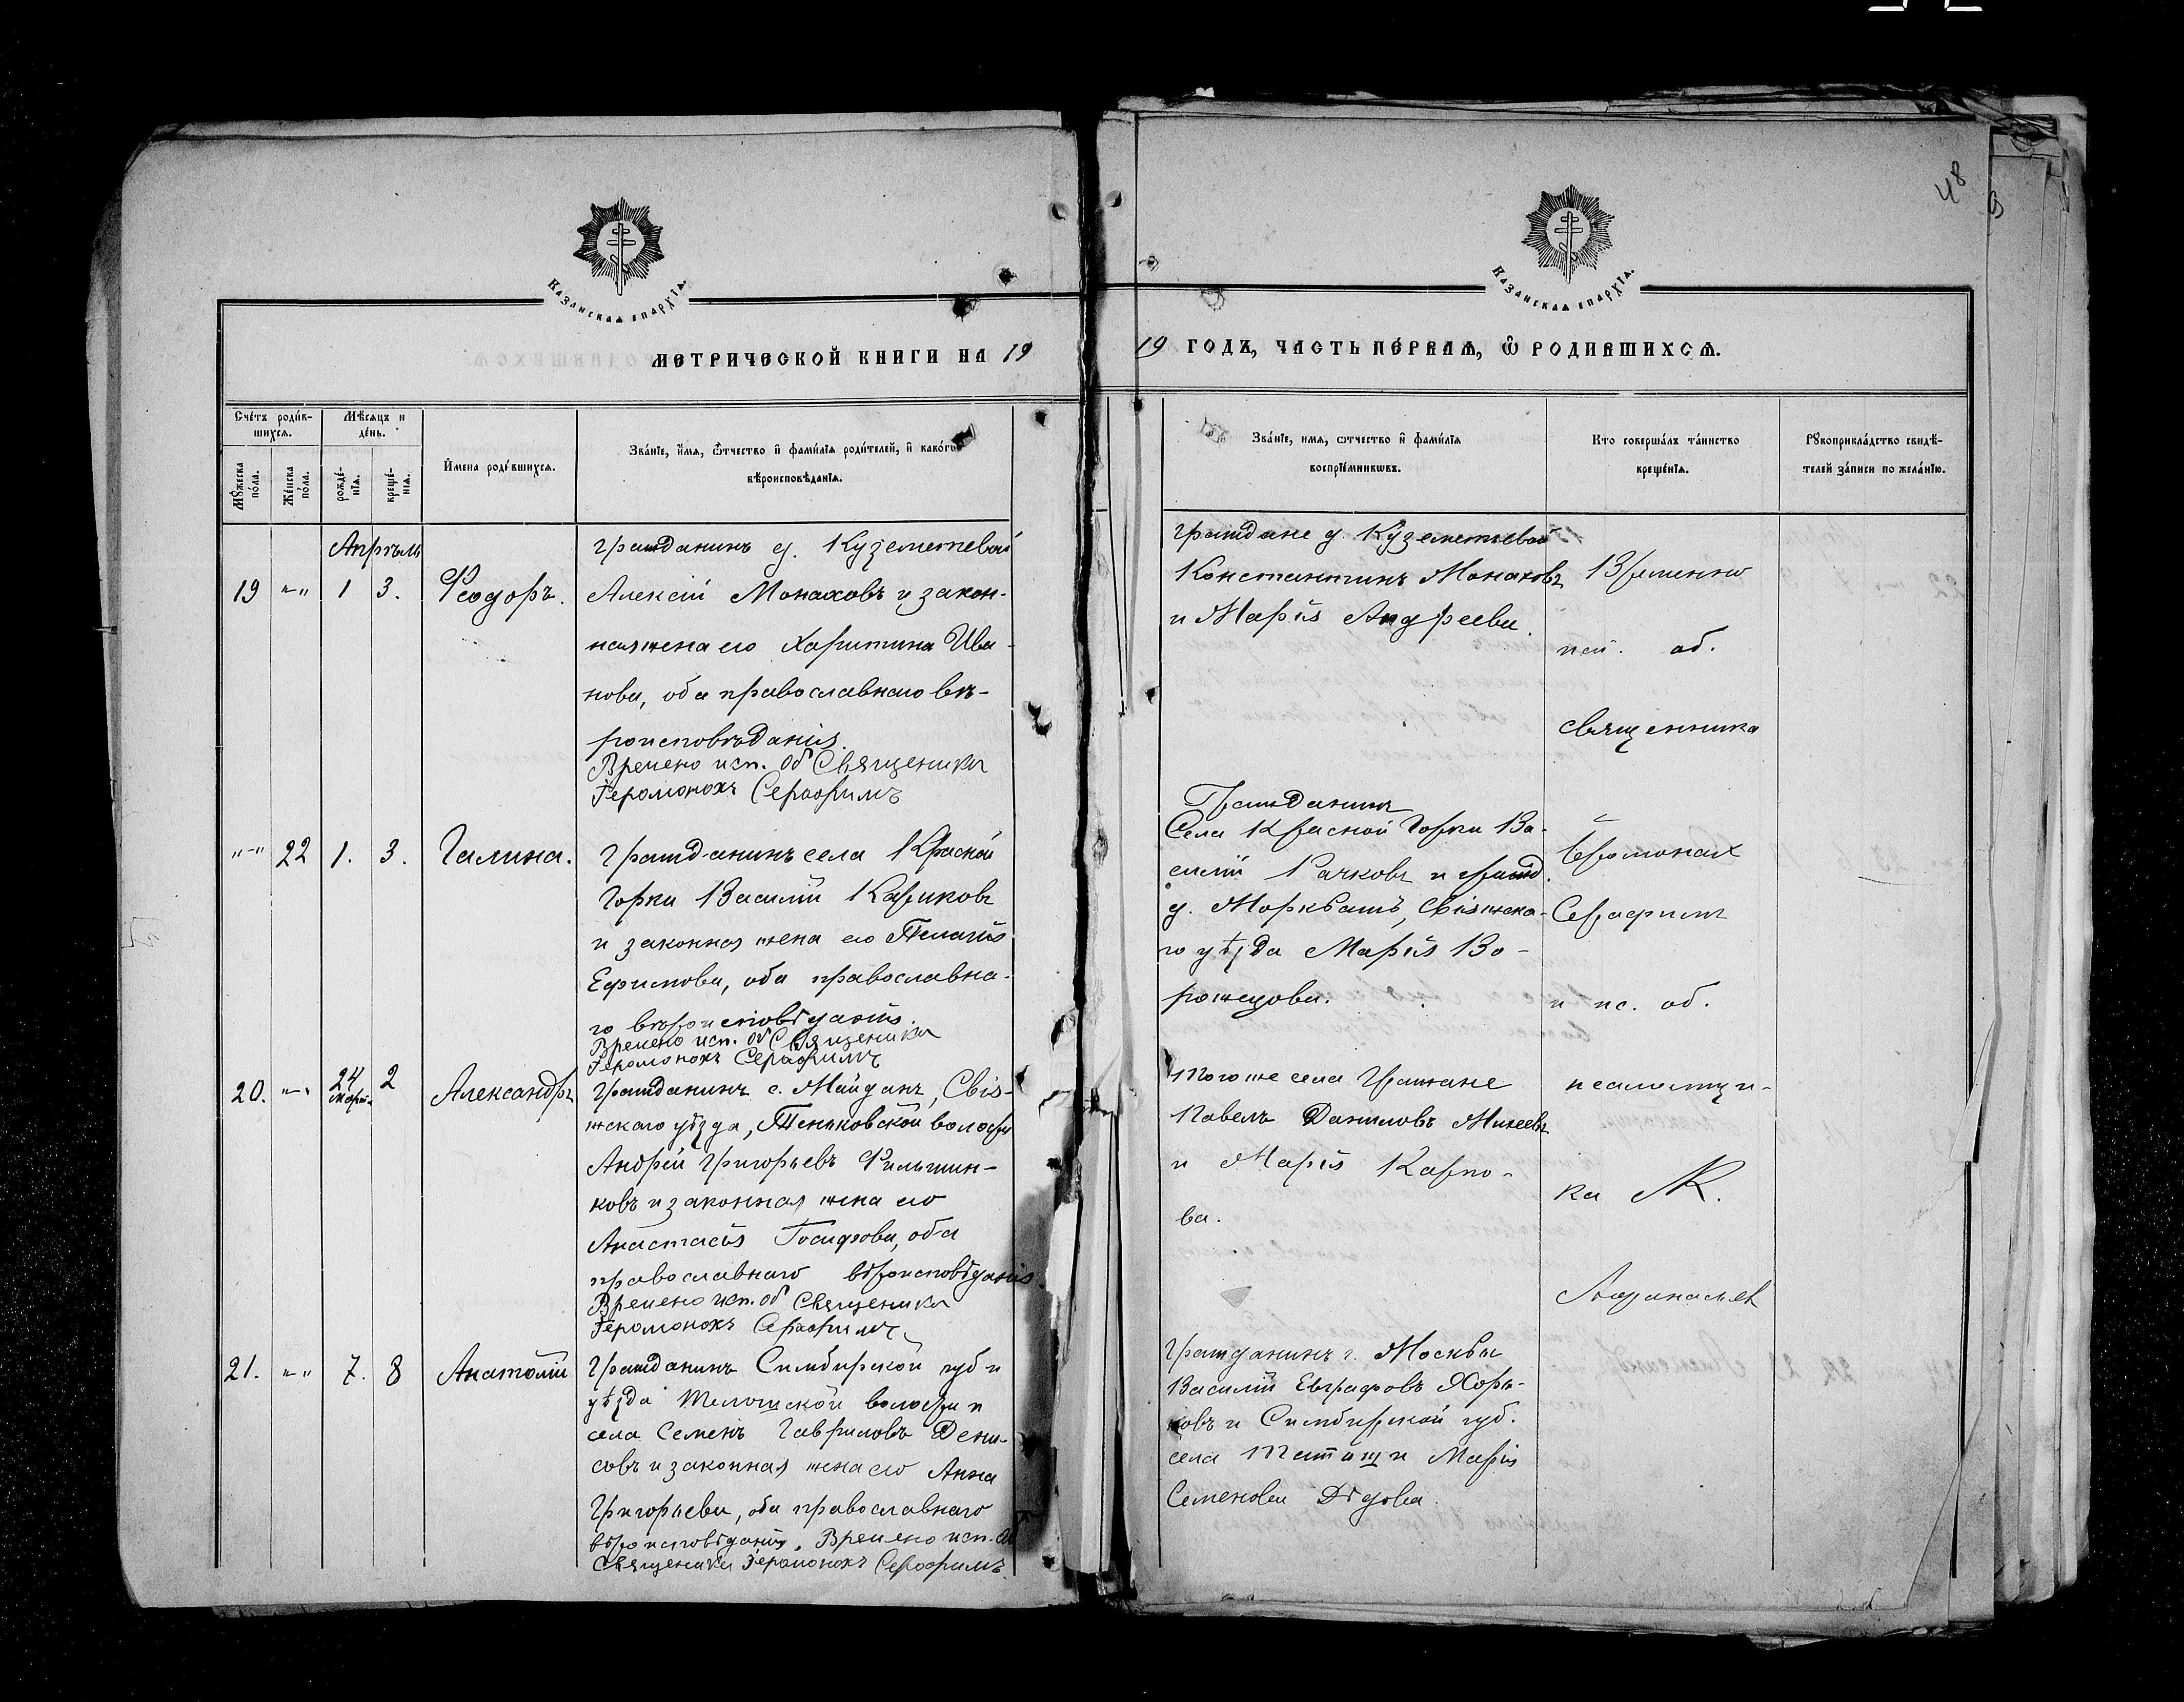 48
Казанская епархїа.
Казанская епархїа.
Метрической книги на 19
19 годъ, часть пе́рвая, ѡ родившихся.
Сче́тъ роди́в-
шихся.
Мѣсяцъ и
де́нь.
Мꙋ́жеска
по́ла.
Же́нска
по́ла.
рожде́-
нїя.
креще́-
нїя.
И҆мена роди́вшихся.
Зва́нїе, и҆́мя, ѻ҆́тчество и҆ фами́лїя роди́телей, и҆ како́гѡ
вѣроисповѣ́данїя.
Зва́нїе, имя, ѻтчество и҆ фами́лїя
воспрїе́мникѡвъ.
Кто соверша́лъ та́инство
креще́нїя.
Рꙋкоприкла́дство свидѣ́-
телей за́писи по жела́нїю.
Апрѣль
19 "-" 1 3. Феодоръ.
гражданинъ д. Куземетевой
Алексій Монаховъ и закон-
ная жена его Харитина Ива-
нова, оба православнаго вѣ-
роисповѣданія.
Времено исп. об Священика
Іеромонохъ Серафимъ
граждане д. Куземетевой
Константинъ Монаховъ
и Марія Андреева.
Временно
исп. об.
священника
"-" 22 1. 3. Галина.
гражданинъ села Красной
Горки Василій Кариковъ
и законная жена его Пелагія
Ефимова, оба православна-
го вѣроисповѣданія.
Времено исп. об Священика
Іеромонохъ Серафимъ
Гражданинъ
Села Красной Горки Ва-
силій Рачковъ и гражд.
д. Моркваш, Свіяжска-
го уѣзда Марія Во-
рожцова.
Іеромонах
Серафимъ
и ис. об.
20. "-" 24 марта 2 Александръ
гражданинъ с. Майданъ, Свія-
жскаго уѣзда, Теньковской волости
Андрей Григорьевъ Фильшин-
ковъ и законная жена его
Анастасія Іосифова, оба
православнаго вѣроисповѣданія
Времено исп. об Священика
Іеромонохъ Серафимъ
того же села Граждане
Павелъ Даниловъ Михеевъ
и Марія Карпо-
ва.
псаломщи-
ка К.
Афанасьев
21. "-" 7. 8 Анатолій
гражданинъ Симбирской губ и
уѣзда волости и
села Семенъ Гавриловъ Дени-
совъ и законная жена его Анна
Григорьева, оба православнаго
вѣроисповѣданія. Времено исп. об
Священика Іеромонохъ Серафимъ.
гражданинъ г. Москвы
Василій Евграфовъ Хорь-
ковъ и Симбирской губ.
села Марія
Семенова Дѣдова.